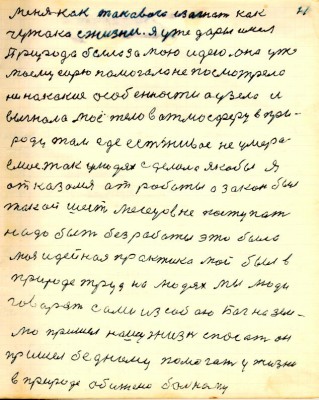 21
меня как такавова изагнат как
чужака с жизни. я уже дары имел
Природа была за мою идею. она уже
моему горю помогала не посмотрела
ни на какие особенности а взела и
выгнала моё тело в атмосферу в при-
роду там где есть живое не умера-
емое так у людях сделала якобы Я
отказался ат работы а закон был
такой шест месецов не поступат
надо быт без работы это была
моя идейная практика мой был в
природе труд на людях мы люди
говарят сами из собою Бог на зем-
лю пришел нашу жизн спасат он
пришел бедному помогат у жизни
в природе обижено больному